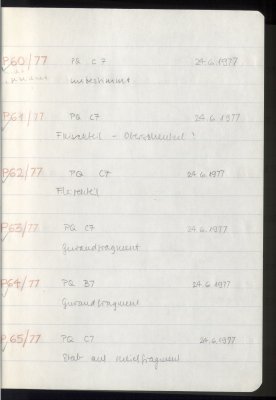 P60/77 PQ C7 24.6.1977
unbestimmt
P61/77 PQ C7 24.6.1977
Fleischteil - Oberschenkel?
P62/77 PQ C7 24.6.1977
P63/77 PQ C7 24.6.1977
Gewandfragment
P64/77 PQ B7 24.6.1977
Gewandfragment
P65/77 PQ C7 24.6.1977
Stab auf Relieffragment